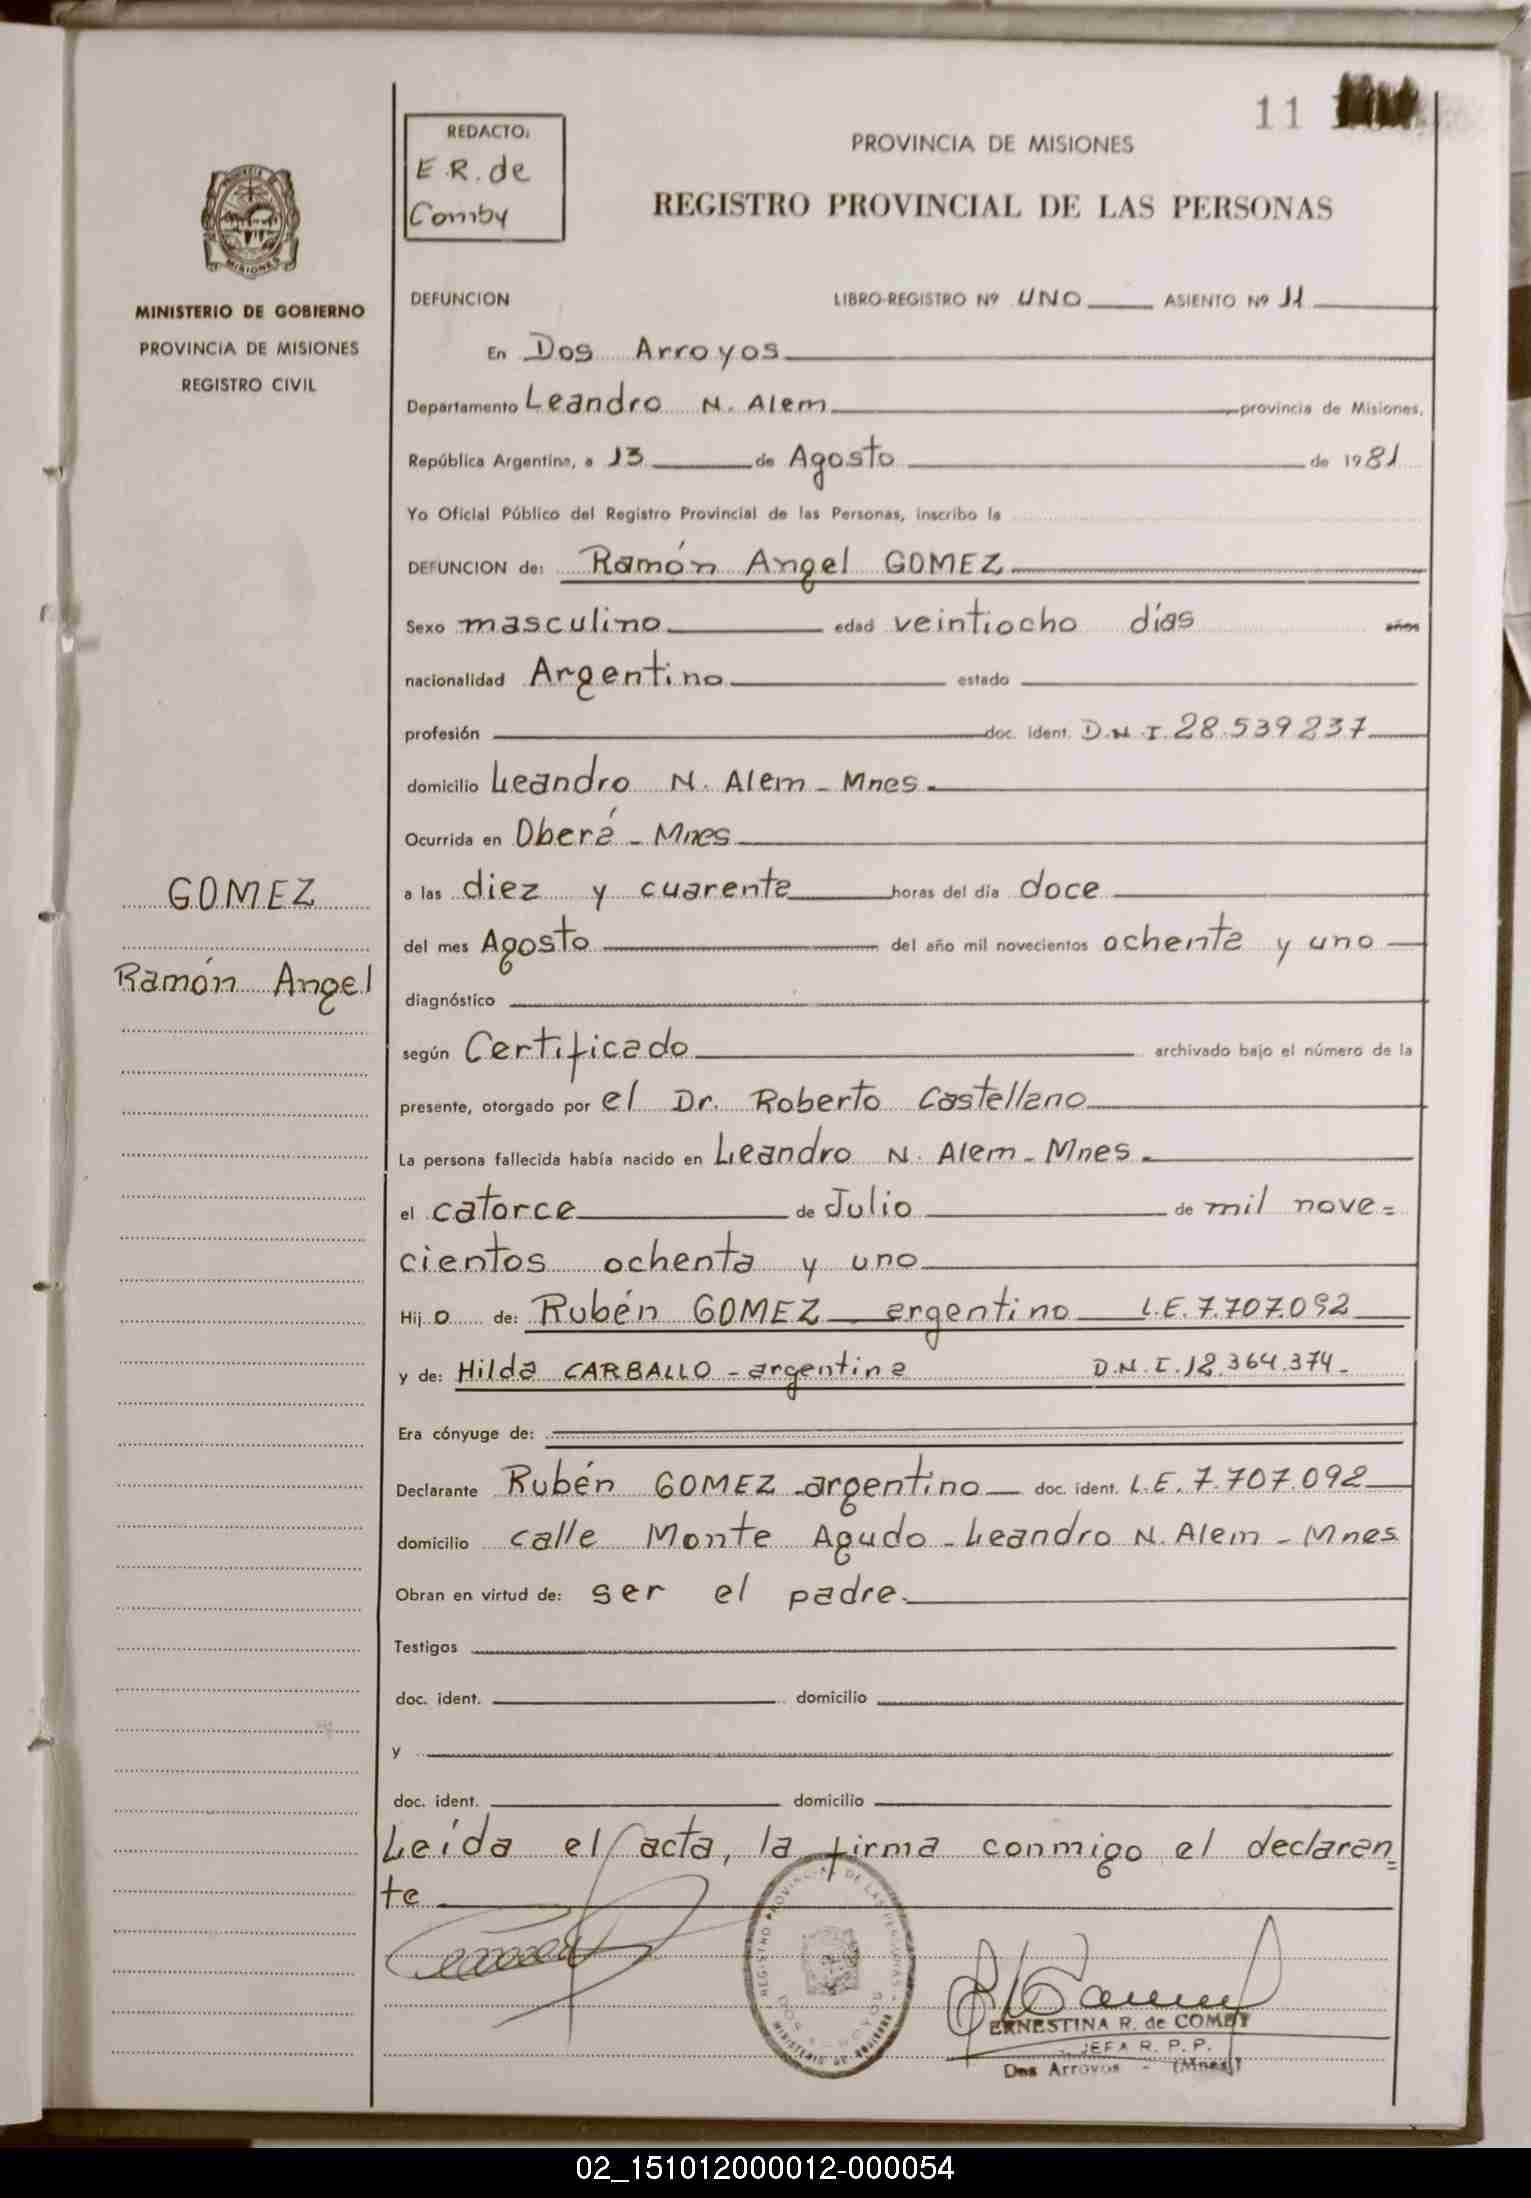 11
REDACTO:
E.R. de
Comby
PROVINCIA DE MISIONES
REGISTRO PROVINCIAL DE LAS PERSONAS
MISIONES
MINISTERIO DE GOBIERNO
PROVINCIA DE MISIONES
REGISTRO CIVIL
DEFUNCION LIBRO-REGISTRO Nº UNO ASIENTO Nº 11
En Dos Arroyos
Departamento Leandro N. Alem provincia de Misiones,
República Argentina, a 13 de Agosto de 1981
Yo Oficial Público del Registro Provincial de las Personas, inscribo la
DEFUNCION de: Ramón Angel GOMEZ
Sexo masculino edad veintiocho días años
nacionalidad Argentino estado
profesión doc. ident. D.N.I. 28.539237
domicilio Leandro N. Alem - Mnes.
Ocurrida en Oberá - Mnes
GOMEZ
Ramón Angel
a las diez y cuarenta horas del día doce
del mes Agosto del año mil novecientos ochenta y uno
diagnóstico
según Certificado archivado bajo el número de la
presente, otorgado por el Dr. Roberto Castellano
La persona fallecida había nacido en Leandro N. Alem - Mnes.
el catorce de Julio de mil nove=
cientos ochenta y uno
Hij o de: Rubén GOMEZ argentino L.E. 7.707.092
y de: Hilda CARBALLO - argentina D.N.I. 12.364.374.
Era cónyuge de:
Declarante Rubén GOMEZ - argentino doc. ident. L.E. 7.707.092
domicilio calle Monte Agudo - Leandro N. Alem - Mnes
Obran en virtud de: ser el padre.
Testigos
doc. ident. domicilio
y
doc. ident. domicilio
Leída el acta, la firma conmigo el declaran=
te
REGISTRO PROVINCIAL DE LAS PERSONAS
DOS ARROYOS
ERNESTINA R. de COMBY
JEFA R. P. P.
Dos Arroyos - (Mnes)
02_151012000012-000054